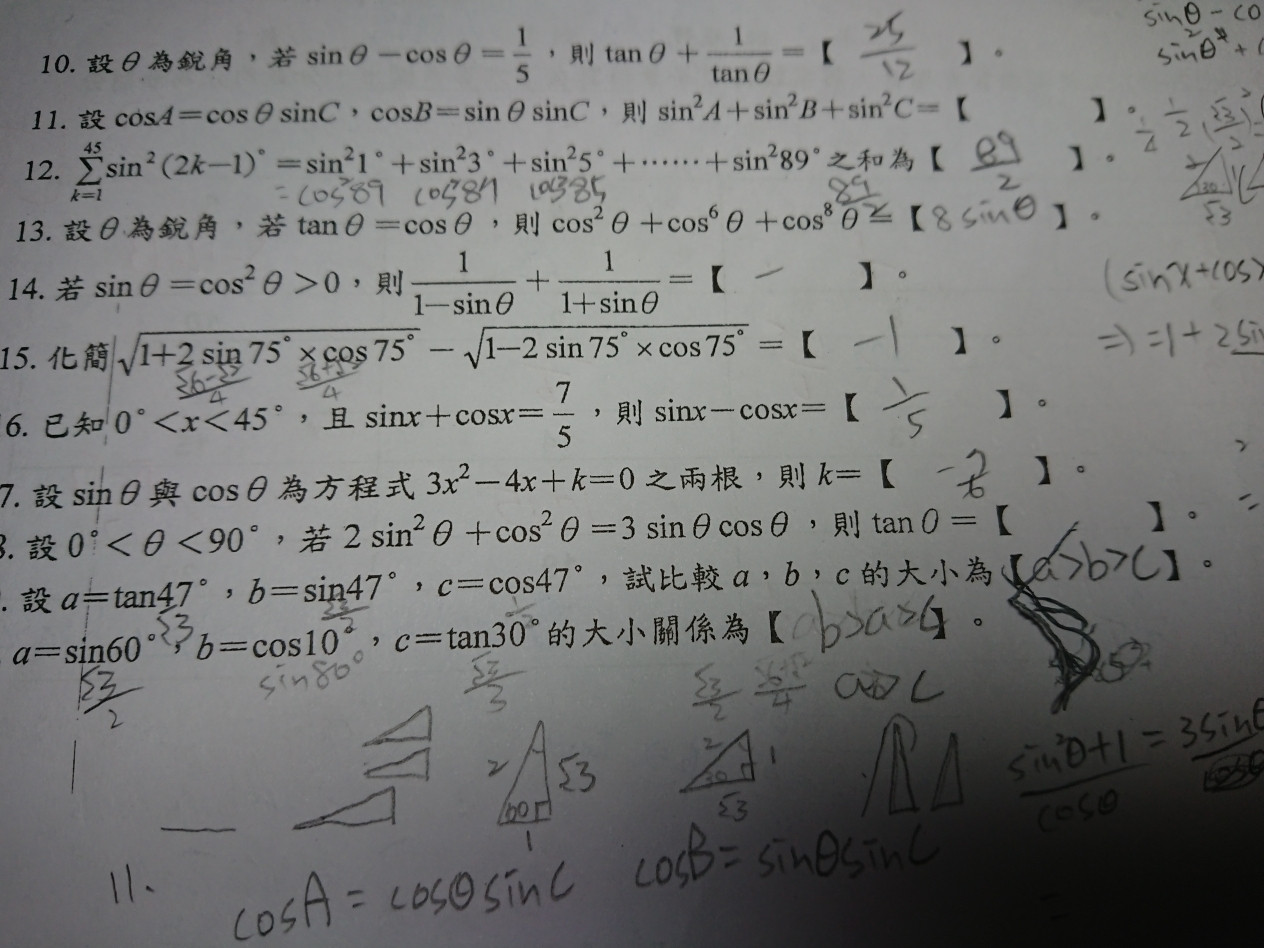 sinθ - co
10. 設θ為銳角，若 sinθ－cosθ＝1/5，則 tanθ＋1/tanθ＝【 25/12 】。
sin²θ +
11. 設 cosA＝cosθ sinC，cosB＝sinθ sinC，則 sin²A＋sin²B＋sin²C＝【 】。
12. 45 Σ k=1 sin²(2k－1)°＝sin²1°＋sin²3°＋sin²5°＋……＋sin²89°之和為【 89/2 】。
= cos²89 cos²87 cos²85 89/2
13. 設θ為銳角，若 tanθ＝cosθ，則 cos²θ＋cos⁶θ＋cos⁸θ＝【 8 sinθ 】。
2 30 1 √3
14. 若 sinθ＝cos²θ＞0，則 1/(1－sinθ)＋1/(1＋sinθ)＝【 － 】。
(sinx+cosx
15. 化簡 √(1＋2 sin 75°×cos 75°)－√(1－2 sin 75°×cos 75°)＝【 －1 】。
⇒ =1+2sin
(√6-√2)/4 (√6+√2)/4
6. 已知 0°＜x＜45°，且 sinx＋cosx＝7/5，則 sinx－cosx＝【 1/5 】。
7. 設 sinθ 與 cosθ 為方程式 3x²－4x＋k＝0 之兩根，則 k＝【 -7/6 】。
設 0°＜θ＜90°，若 2 sin²θ＋cos²θ＝3 sinθ cosθ，則 tanθ＝【 】。
. 設 a＝tan47°，b＝sin47°，c＝cos47°，試比較 a，b，c 的大小為【a>b>c】。
√3
a＝sin60°，b＝cos10°，c＝tan30°的大小關係為【 b>a>c 】。
√3/2 sin80° √3/3 √3/2 (√6+√2)/4
2 60 √3 1
2 30 1 √3
sin²θ+1 = 3sinθ
cosθ
11. cosA = cosθsinC cosB = sinθsinC